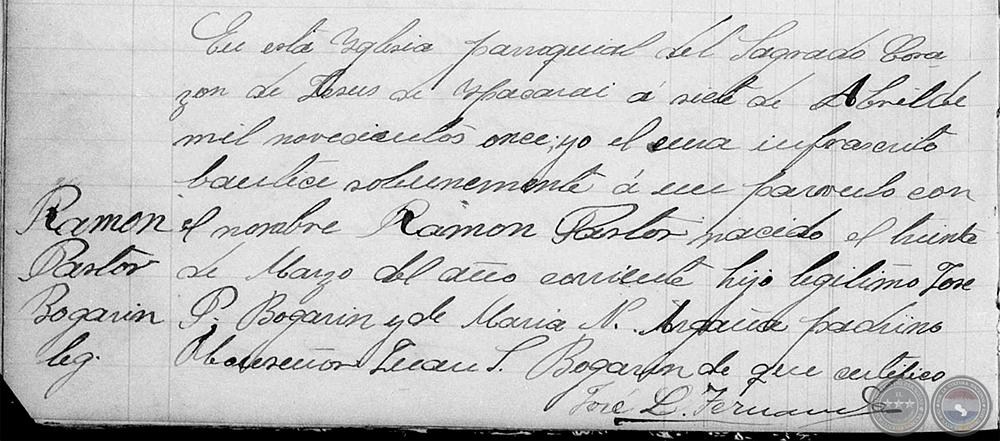 En esta Yglesia parroquial del Sagrado Cora-
zon de Jesus de Ypacarai á siete de Abril de
mil novecientos once; yo el cura infrascrito
bautice solemnemente á un parvulo con
Ramon el nombre Ramon Pastor nacido el treinta
Pastor de Marzo del año corriente hijo legitimo José
Bogarin P. Bogarin y de Maria N. Argaña padrino
leg. Monseñor Juan S. Bogarin de que certifico
José L. Fernand